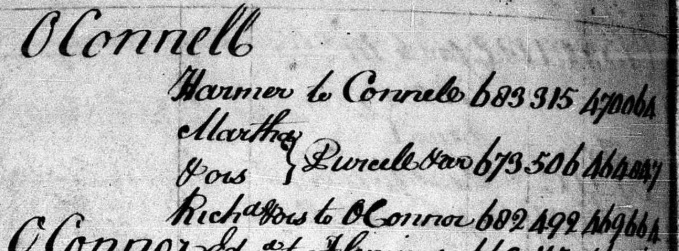 OConnell
Harmer to Connell 683 315 470064
Martha
& ors } Purcell & ano 673 506 464847
Richd & ors to OConnor 682 492 469664
OConnor Ed